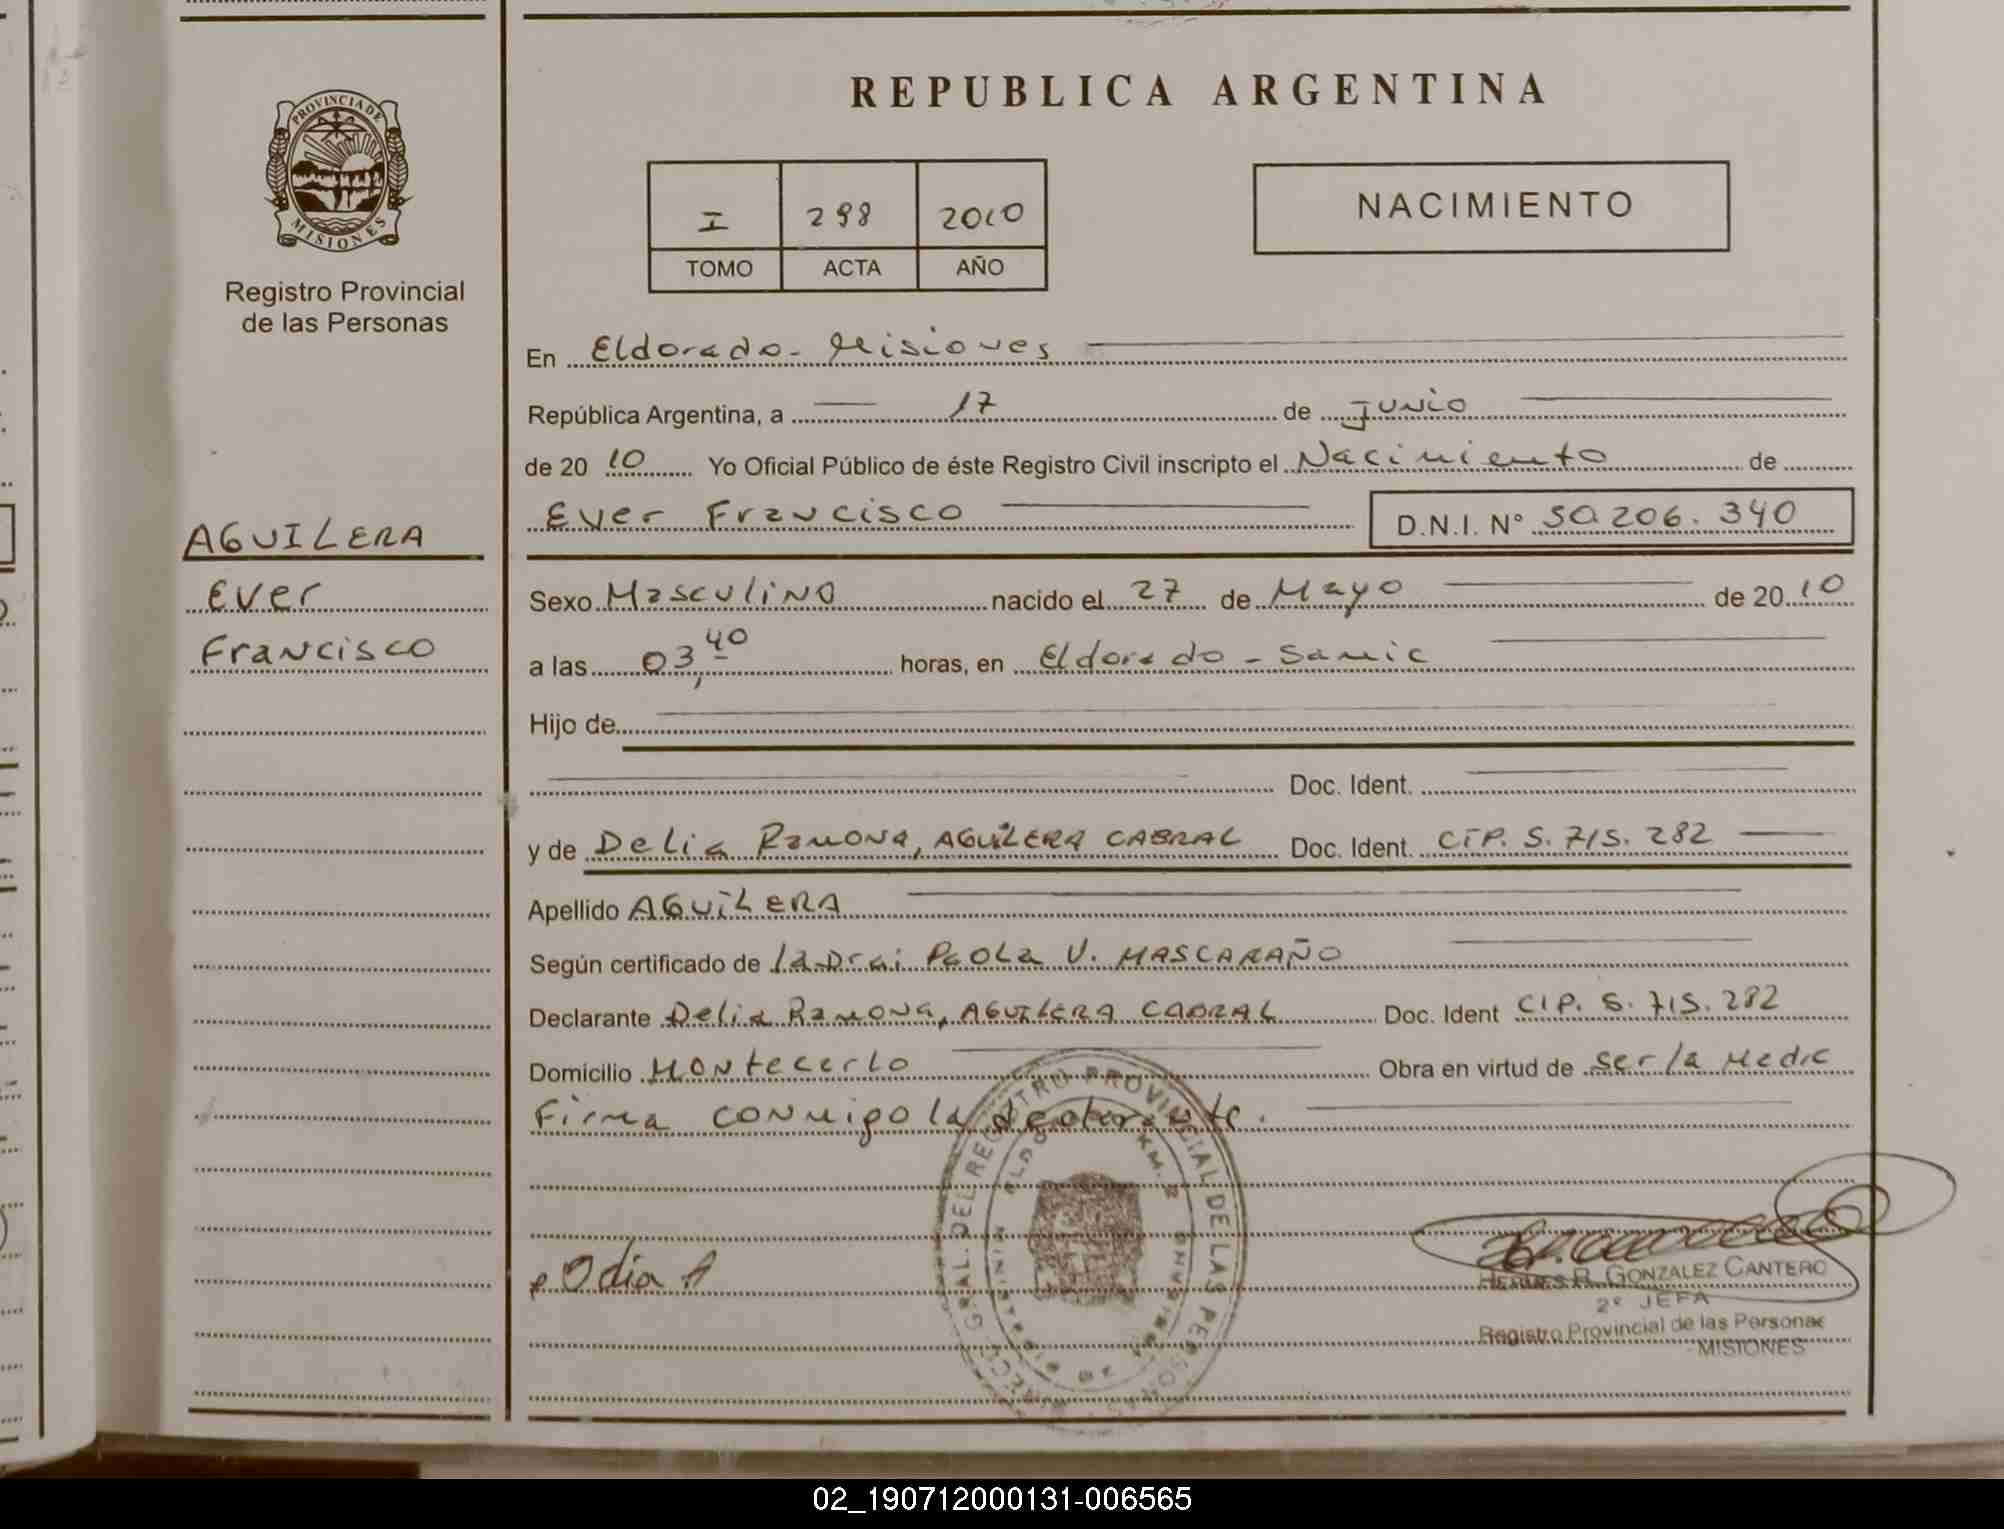 PROVINCIA DE
MISIONES
Registro Provincial
de las Personas
AGUILERA
Ever
Francisco
REPUBLICA ARGENTINA
I 298 2010
TOMO ACTA AÑO
NACIMIENTO
En Eldorado - Misiones
República Argentina, a 17 de junio
de 20 10 Yo Oficial Público de éste Registro Civil inscripto el Nacimiento de
Ever Francisco D.N.I. N° 50.206.340
Sexo Masculino nacido el 27 de Mayo de 20 10
a las 03,40 horas, en Eldorado - Samic
Hijo de
Doc. Ident.
y de Delia Ramona, AGUILERA CABRAL Doc. Ident. CIP. 5.715.282
Apellido AGUILERA
Según certificado de la Dra: Paola V. MASCARAÑO
Declarante Delia Ramona, AGUILERA CABRAL Doc. Ident CIP. 5.715.282
Domicilio Montecarlo Obra en virtud de ser la Madre
Firma conmigo la declarante.
Odia A
GONZALEZ CANTERO
2° JEFA
Registro Provincial de las Personas
MISIONES
REGISTRO PROVINCIAL DE LAS PERSONAS
02_190712000131-006565